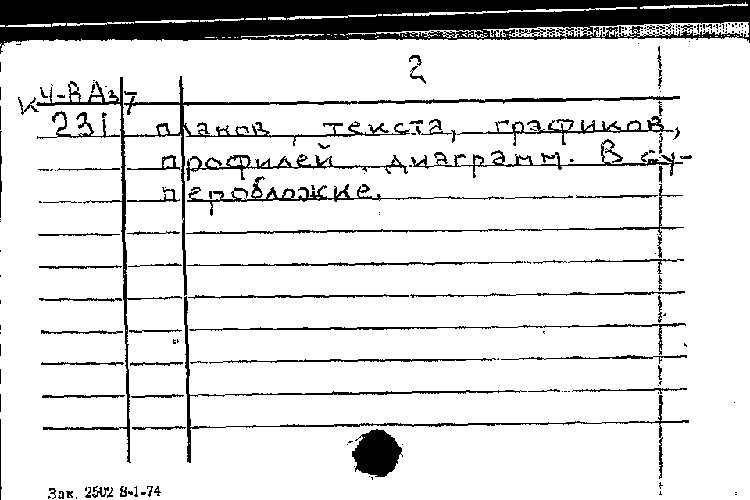 2
К4-В Аз7
231 планов, текста, графиков,
профилей, диаграмм. В су-
перобложке.
Зак. 2502 8-1-74